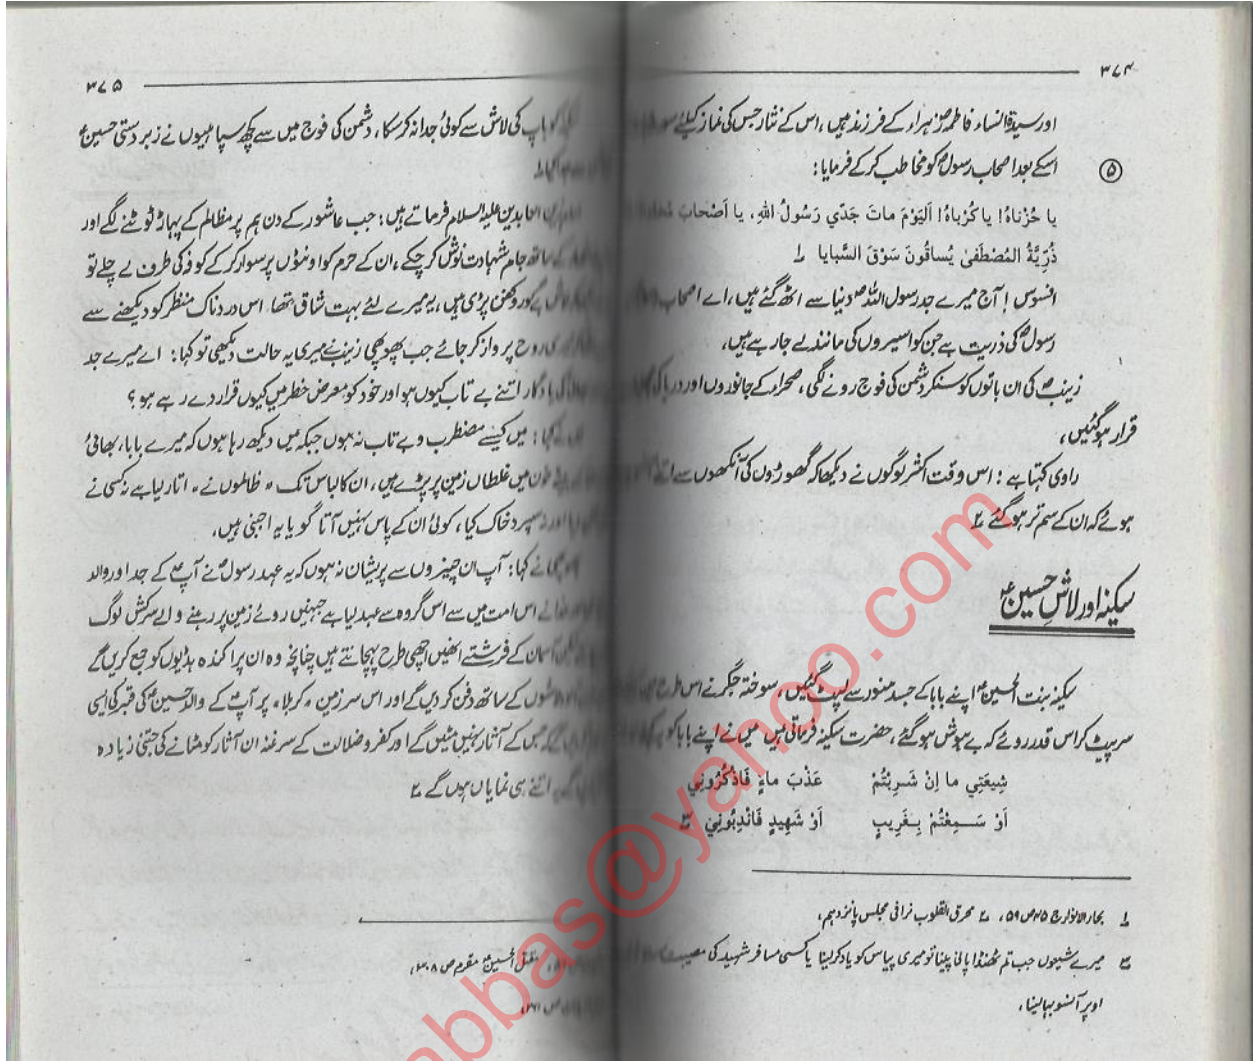 ۳۷۴
اور سیدۃ النساء فاطمہ زہراء کے فرزند ہیں، اس کے نثار جس کی نماز کیلئے
۵ اسکے بعد اصحاب رسولؐ کو مخاطب کرکے فرمایا:
يا حُزْناهُ! يا كُرْباهُ! اَليَوْمَ ماتَ جَدّي رَسُولُ اللهِ، يا اَصْحابَ
ذُرِّيَّةُ المُصْطَفىٰ يُساقُونَ سَوْقَ السَّبايا ۱
افسوس! آج میرے جد رسول اللہؐ دنیا سے اٹھ گئے ہیں، اے اصحاب
رسولؐ کی ذریت ہے جن کو اسیروں کی مانند لے جا رہے ہیں،
زینبؑ کی ان باتوں کو سنکر دشمن کی فوج رونے لگی، صحراء کے جانوروں اور دریا کی
قرار ہو گئیں،
راوی کہتا ہے: اس وقت اکثر لوگوں نے دیکھا کہ گھوڑوں کی آنکھوں سے اتنے
ہوئے کہ ان کے سم تر ہو گئے ۲
سکینہ اور لاشِ حسینؑ
سکینہ بنت الحسینؑ اپنے بابا کے جسد منور سے لپٹ گئیں، سوختہ جگر نے اس طرح
سر پیٹ کر اس قدر روئے کہ بے ہوش ہو گئے، حضرت سکینہ فرماتی ہیں میں نے اپنے بابا کو
شِيعَتِي ما اِنْ شَرِبْتُمْ عَذْبَ ماءٍ فَاذْكُرُونِي
اَوْ سَمِعْتُمْ بِغَرِيبٍ اَوْ شَهِيدٍ فَانْدِبُونِي ۳
۱ بحار الانوار ج ۴۵ ص ۵۹، ۲ محرق القلوب نراقی مجلس پانزدہم،
۳ میرے شیعوں جب تم ٹھنڈا پانی پینا تو میری پیاس کو یاد کر لینا یا کسی مسافر شہید کی مصیبت
اوپر آنسو بہا لینا،
۳۷۵
کو باپ کی لاش سے کوئی جدا نہ کر سکا، دشمن کی فوج میں سے کچھ سپاہیوں نے زبردستی حسینؑ
العابدین علیہ السلام فرماتے ہیں: جب عاشور کے دن ہم پر مظالم کے پہاڑ ٹوٹنے لگے اور
کے ساتھ جام شہادت نوش کر چکے، ان کے حرم کو اونٹوں پر سوار کرکے کوفہ کی طرف لے چلے تو
بے گور و کفن پڑی ہیں، یہ میرے لئے بہت شاق تھا اس دردناک منظر کو دیکھنے سے
روح پرواز کر جائے جب پھوپھی زینبؑ نے میری یہ حالت دیکھی تو کہا: اے میرے جد
کی یادگار اتنے بے تاب کیوں ہو اور خود کو معرض خطر میں کیوں قرار دے رہے ہو؟
کہا: میں کیسے مضطرب و بے تاب نہ ہوں جبکہ میں دیکھ رہا ہوں کہ میرے بابا، بھائی
خون میں غلطاں زمین پر پڑے ہیں، ان کا لباس تک ظالموں نے اتار لیا ہے نہ کسی نے
اور نہ سپرد خاک کیا، کوئی ان کے پاس نہیں آتا گویا یہ اجنبی ہیں،
نے کہا: آپ ان چیزوں سے پریشان نہ ہوں کہ یہ عہد رسولؐ نے آپؑ کے جد اور والد
نے اس امت میں سے اس گروہ سے عہد لیا ہے جنہیں روئے زمین پر رہنے والے سرکش لوگ
آسمان کے فرشتے انھیں اچھی طرح پہچانتے ہیں چنانچہ وہ ان پراگندہ ہڈیوں کو جمع کریں گے
کے ساتھ دفن کر دیں گے اور اس سرزمین، کربلا، پر آپؑ کے والد حسینؑ کی قبر کی ایسی
جس کے آثار نہیں مٹیں گے اور کفر و ضلالت کے سرغنہ ان آثار کو مٹانے کی جتنی زیادہ
اتنے ہی نمایاں ہوں گے ۲
مقتل الحسینؑ مقرم ص ۳۰۸،
abbas@yahoo.com